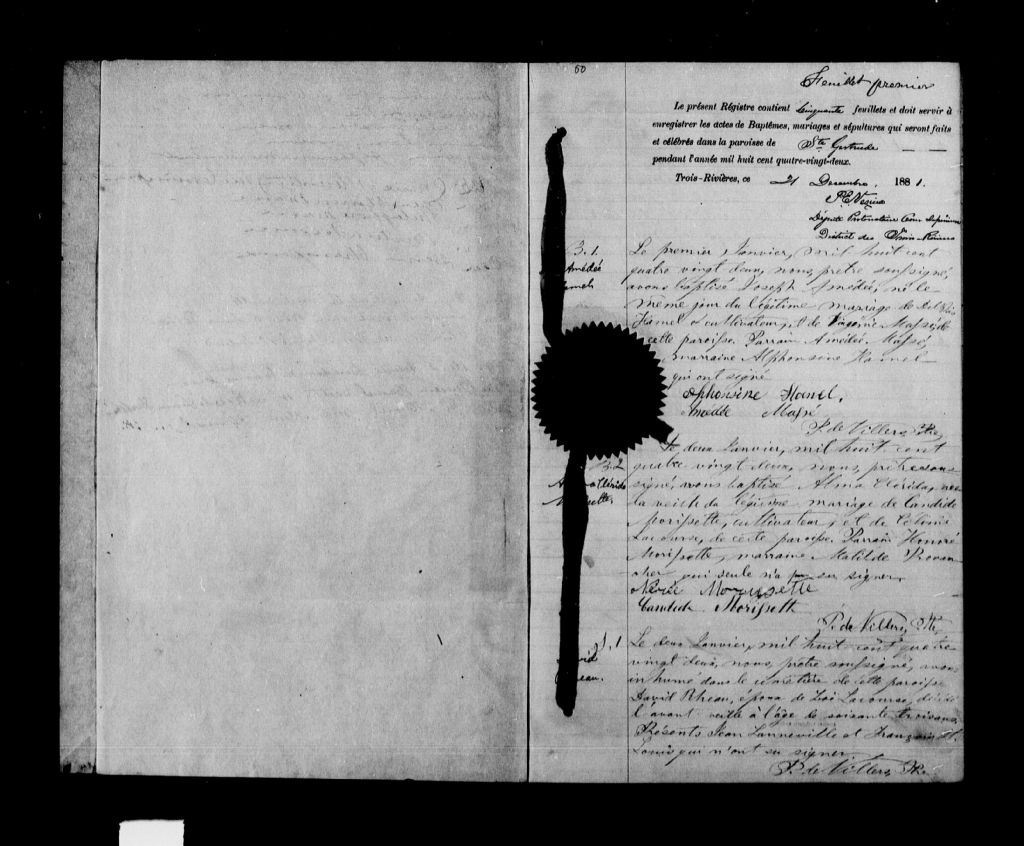 50
Feuillet premier
Le présent Régistre contient Cinquante feuillets et doit servir à
enregistrer les actes de Baptêmes, mariages et sépultures qui seront faits
et célébrés dans la paroisse de Ste Gertrude
pendant l'année mil huit cent quatre-vingt-deux.
Trois-Rivières, ce 21 Decembre, 1881.
Député Protonotaire Cour Supérieure
District des Trois-Rivières
B. 1.
Amédée
Hamel
Le premier Janvier, mil huit cent
quatre vingt deux, nous, prêtre soussigné,
avons baptisé Joseph Amédée, né le
même jour du légitime mariage de
Hamel cultivateur, et de Massé, de
cette paroisse. Parrain Amédée Massé,
marraine Alphonsine Hamel
qui ont signé
Alphonsine Hamel,
Amédée Massé
P. de Villers, Ptre
B. 2
Clérida
Le deux Janvier, mil huit cent
quatre vingt deux, nous, prêtre sous-
signé, avons baptisé Alma Clérida, née
la veille du légitime mariage de Candide
Morissette, cultivateur, et de Célanie
Lacourse, de cette paroisse. Parrain Honoré
Morissette, marraine Matilde Proven-
cher, qui seule n'a pu signer.
Morissette
Candide Morissett
P. de Villers, Ptre
S. 1
David
Rheau.
Le deux Janvier, mil huit cent quatre
vingt deux, nous, prêtre soussigné, avons
inhumé dans le cimetière de cette paroisse
David Rheau, époux de Zoé Lacourse, décédé
l'avant veille à l'âge de soixante trois ans.
Présents Jean Lanneville et François St.
Louis qui n'ont su signer
P. de Villers, Ptre